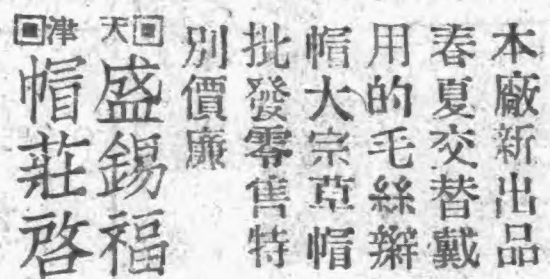 本廠新出品
春夏交替戴
用的毛絲辮
帽大宗草帽
批發零售特
別價廉
天津
盛錫福
帽莊啓